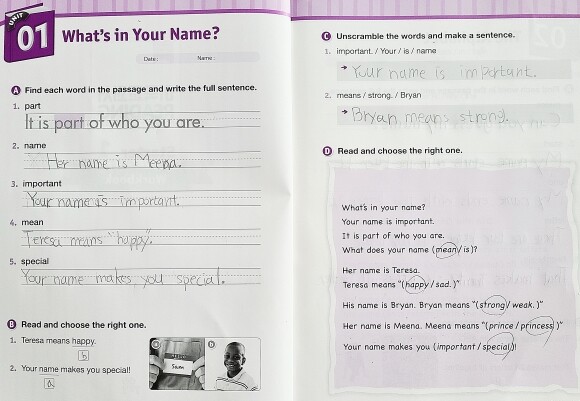 UNIT
01 What's in Your Name?
Date : Name :
A Find each word in the passage and write the full sentence.
1. part
It is part of who you are.
2. name
Her name is Meena.
3. important
Your name is important.
4. mean
Teresa means "happy".
5. special
Your name makes you special.
B Read and choose the right one.
1. Teresa means happy.
b
2. Your name makes you special!
a
a b
C Unscramble the words and make a sentence.
1. important. / Your / is / name
→ Your name is important.
2. means / strong. / Bryan
→ Bryan means strong.
D Read and choose the right one.
What's in your name?
Your name is important.
It is part of who you are.
What does your name (mean / is)?
Her name is Teresa.
Teresa means "(happy / sad. )"
His name is Bryan. Bryan means "(strong / weak. )"
Her name is Meena. Meena means "(prince / princess.)"
Your name makes you (important / special)!